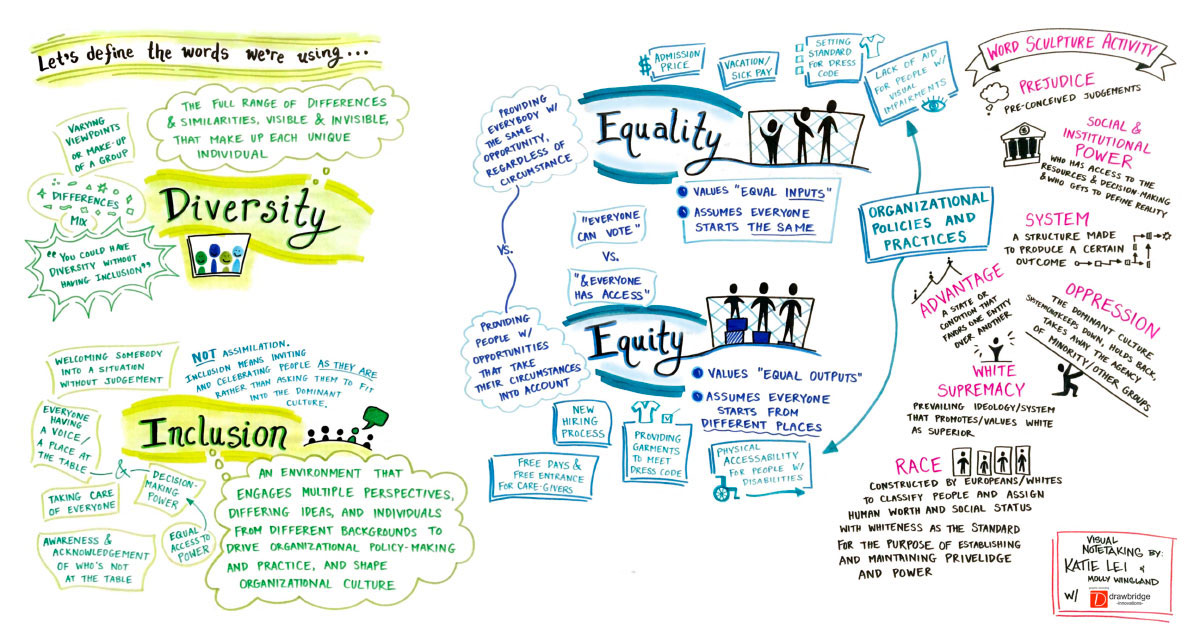 Let's define the words we're using...
THE FULL RANGE OF DIFFERENCES
& SIMILARITIES, VISIBLE & INVISIBLE,
THAT MAKE UP EACH UNIQUE
INDIVIDUAL
VARYING
VIEWPOINTS
OR MAKE-UP
OF A GROUP
DIFFERENCES
MIX
Diversity
"YOU COULD HAVE
DIVERSITY WITHOUT
HAVING INCLUSION"
WELCOMING SOMEBODY
INTO A SITUATION
WITHOUT JUDGEMENT
NOT ASSIMILATION.
INCLUSION MEANS INVITING
AND CELEBRATING PEOPLE AS THEY ARE
RATHER THAN ASKING THEM TO FIT
INTO THE DOMINANT
CULTURE.
EVERYONE
HAVING
A VOICE/
A PLACE AT
THE TABLE
Inclusion
&
DECISION-
MAKING
POWER
TAKING CARE
OF EVERYONE
EQUAL
ACCESS TO
POWER
AWARENESS &
ACKNOWLEDGEMENT
OF WHO'S NOT
AT THE TABLE
AN ENVIRONMENT THAT
ENGAGES MULTIPLE PERSPECTIVES,
DIFFERING IDEAS, AND INDIVIDUALS
FROM DIFFERENT BACKGROUNDS TO
DRIVE ORGANIZATIONAL POLICY-MAKING
AND PRACTICE, AND SHAPE
ORGANIZATIONAL CULTURE
$ ADMISSION
PRICE
VACATION/
SICK PAY
SETTING
STANDARD
FOR DRESS
CODE
LACK OF AID
FOR PEOPLE W/
VISUAL
IMPAIRMENTS
PROVIDING
EVERYBODY W/
THE SAME
OPPORTUNITY,
REGARDLESS OF
CIRCUMSTANCE
Equality
VALUES "EQUAL INPUTS"
ASSUMES EVERYONE
STARTS THE SAME
"EVERYONE
CAN VOTE"
VS.
"& EVERYONE
HAS ACCESS"
VS.
ORGANIZATIONAL
POLICIES AND
PRACTICES
PROVIDING
PEOPLE W/
OPPORTUNITIES
THAT TAKE
THEIR CIRCUMSTANCES
INTO ACCOUNT
Equity
VALUES "EQUAL OUTPUTS"
ASSUMES EVERYONE
STARTS FROM
DIFFERENT PLACES
NEW
HIRING
PROCESS
PROVIDING
GARMENTS
TO MEET
DRESS CODE
FREE DAYS &
FREE ENTRANCE
FOR CARE-GIVERS
PHYSICAL
ACCESSABILITY
FOR PEOPLE W/
DISABILITIES
WORD SCULPTURE ACTIVITY
PREJUDICE
PRE-CONCEIVED JUDGEMENTS
SOCIAL &
INSTITUTIONAL
POWER
WHO HAS ACCESS TO THE
RESOURCES & DECISION-MAKING
& WHO GETS TO DEFINE REALITY
SYSTEM
A STRUCTURE MADE
TO PRODUCE A CERTAIN
OUTCOME
ADVANTAGE
A STATE OR
CONDITION THAT
FAVORS ONE ENTITY
OVER ANOTHER
OPPRESSION
THE DOMINANT CULTURE
KEEPS DOWN, HOLDS BACK,
TAKES AWAY THE AGENCY
OF MINORITY/OTHER GROUPS
WHITE
SUPREMACY
PREVAILING IDEOLOGY/SYSTEM
THAT PROMOTES/VALUES WHITE
AS SUPERIOR
RACE
CONSTRUCTED BY EUROPEANS/WHITES
TO CLASSIFY PEOPLE AND ASSIGN
HUMAN WORTH AND SOCIAL STATUS
WITH WHITENESS AS THE STANDARD
FOR THE PURPOSE OF ESTABLISHING
AND MAINTAINING PRIVELIDGE
AND POWER
VISUAL
NOTETAKING BY:
KATIE LEI &
MOLLY WINGLAND
W/ drawbridge
-innovations-